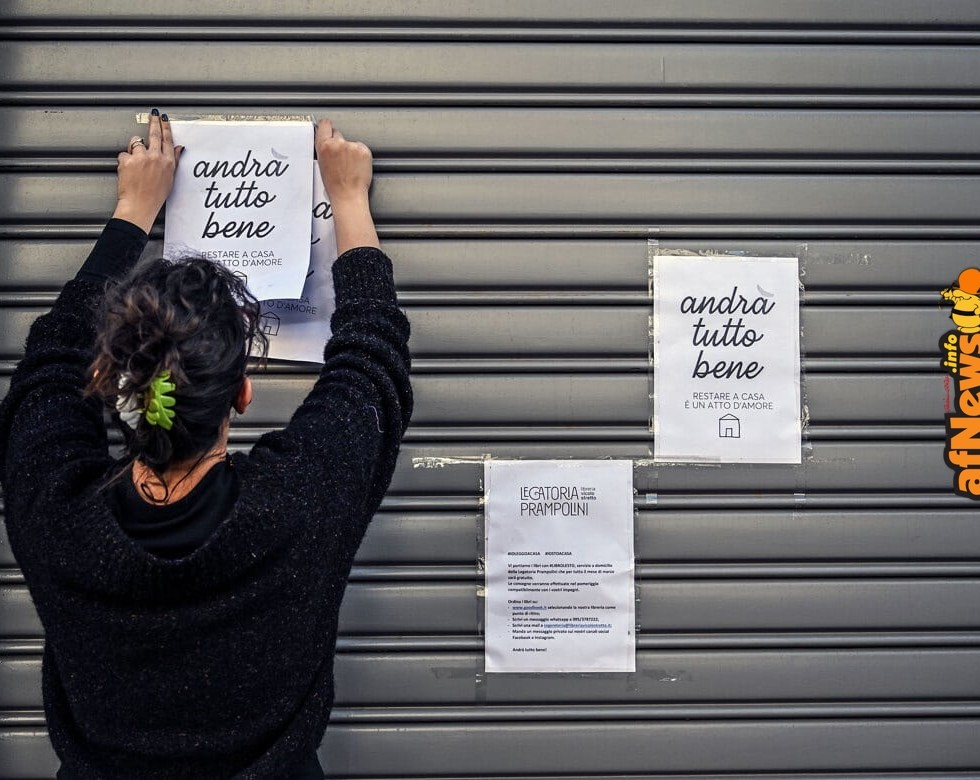 andrà
tutto
bene
RESTARE A CASA
ATTO D'AMORE
a
CASA
TO D'AMORE
andrà
tutto
bene
RESTARE A CASA
È UN ATTO D'AMORE
LEGATORIA
PRAMPOLINI
libreria
vicolo
stretto
#IOLEGGOACASA #IOSTOACASA
Vi portiamo i libri con #LIBROLESTO, servizio a domicilio
della Legatoria Prampolini che per tutto il mese di marzo
sarà gratuito.
Le consegne verranno effettuate nel pomeriggio
compatibilmente con i vostri impegni.
Ordina i libri su:
- www.goodbook.it selezionando la nostra libreria come
punto di ritiro;
- Scrivi un messaggio whatsapp a 095/3787222;
- Scrivi una mail a
- Manda un messaggio privato sui nostri canali social
Facebook e Instagram.
Andrà tutto bene!
afNews.info